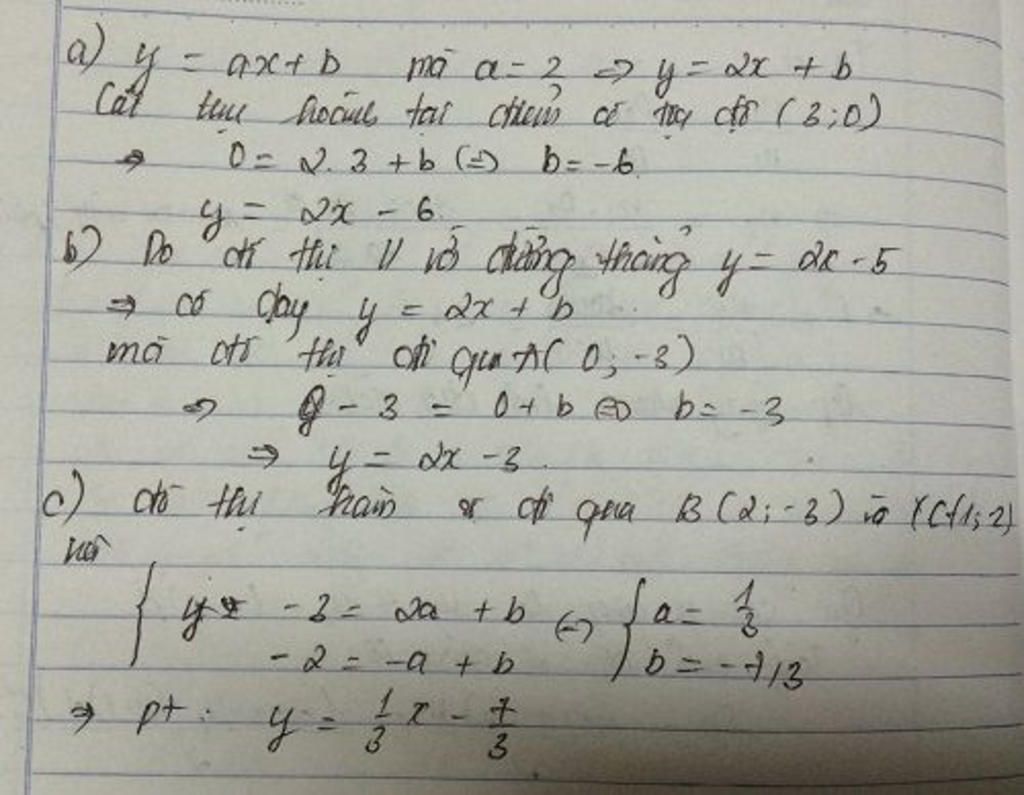 a) y = ax + b mà a = 2 => y = 2x + b
Cắt trục hoành tại điểm có tọa độ (3;0)
=> 0 = 2.3 + b <=> b = -6
y = 2x - 6.
b) Do đồ thị // với đường thẳng y = 2x - 5
=> có dạng y = 2x + b
mà đồ thị đi qua A( 0; -3)
=> - 3 = 0 + b <=> b = -3
=> y = 2x - 3.
c) đồ thị hàm số đi qua B(2; -3) và C(-1; 2)
nên
{ - 3 = 2a + b <=> { a = 1/3
-2 = -a + b b = -7/3
=> pt: y = 1/3 x - 7/3